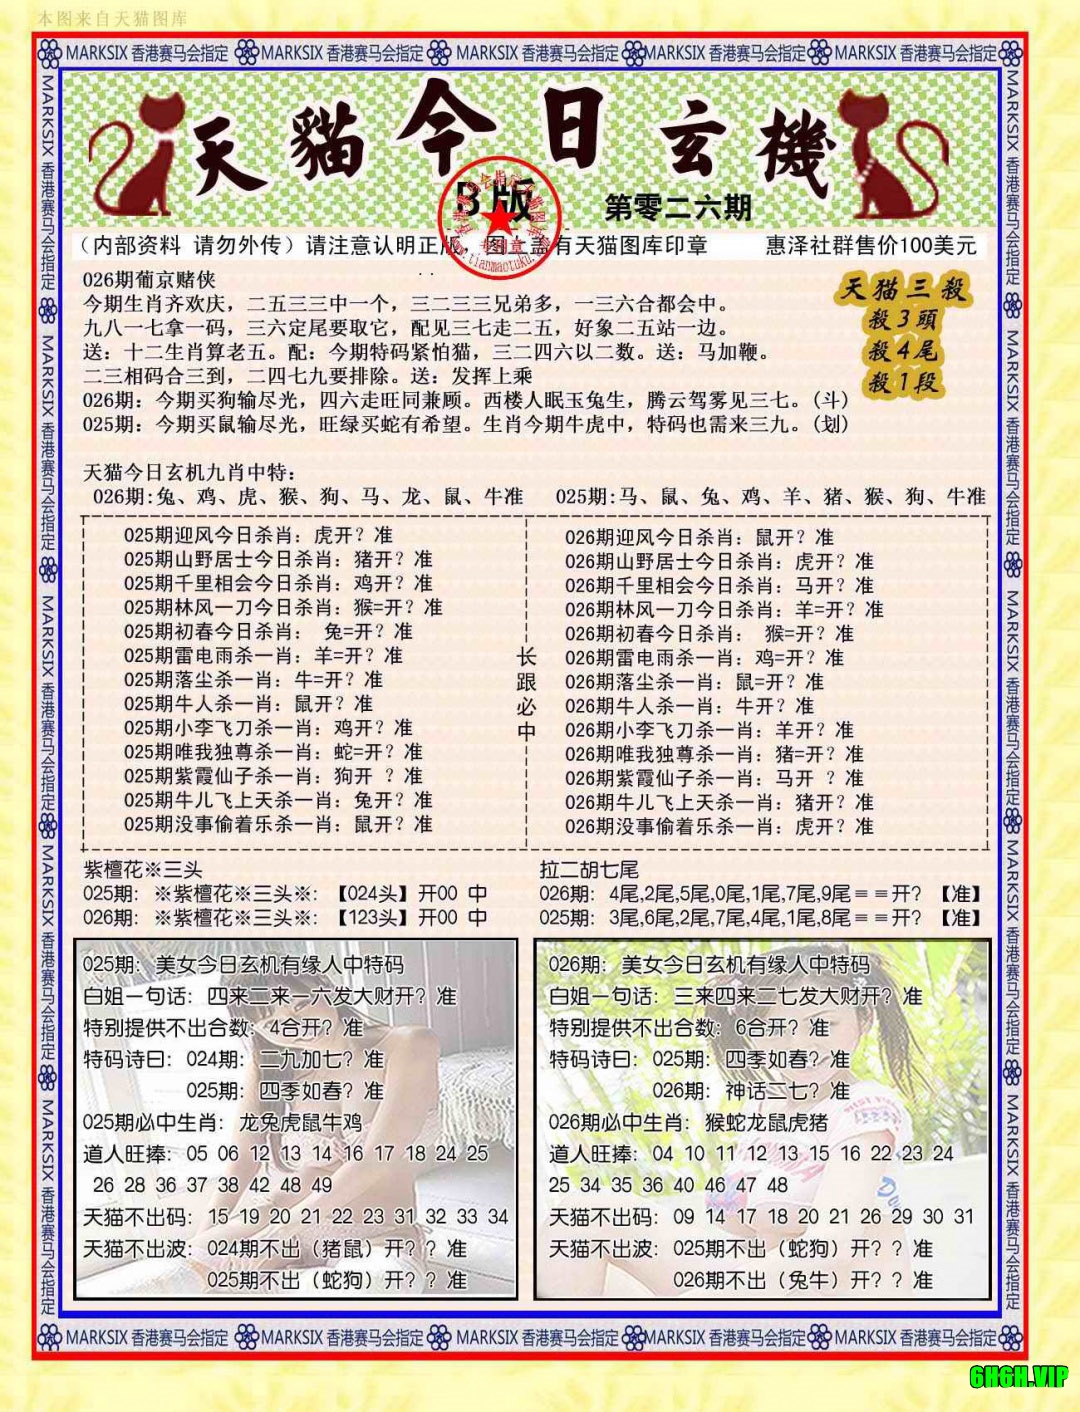 本图来自天猫图库
MARKSIX 香港赛马会指定 MARKSIX 香港赛马会指定 MARKSIX 香港赛马会指定 MARKSIX 香港赛马会指定 MARKSIX 香港赛马会指定
天貓今日玄機
B版
第零二六期
(内部资料 请勿外传）请注意认明正版，图上盖有天猫图库印章 惠泽社群售价100美元
026期葡京赌侠
今期生肖齐欢庆，二五三三中一个，三二三三兄弟多，一三六合都会中。
九八一七拿一码，三六定尾要取它，配见三七走二五，好象二五站一边。
送：十二生肖算老五。配：今期特码紧怕猫，三二四六以二数。送：马加鞭。
二三相码合三到，二四七九要排除。送：发挥上乘
026期：今期买狗输尽光，四六走旺同兼顾。西楼人眠玉兔生，腾云驾雾见三七。(斗)
025期：今期买鼠输尽光，旺绿买蛇有希望。生肖今期牛虎中，特码也需来三九。(划)
天猫三殺
殺3頭
殺4尾
殺1段
天猫今日玄机九肖中特：
026期:兔、鸡、虎、猴、狗、马、龙、鼠、牛准 025期:马、鼠、兔、鸡、羊、猪、猴、狗、牛准
025期迎风今日杀肖：虎开？准
025期山野居士今日杀肖：猪开？准
025期千里相会今日杀肖：鸡开？准
025期林风一刀今日杀肖：猴=开？准
025期初春今日杀肖： 兔=开？准
025期雷电雨杀一肖：羊=开？准
025期落尘杀一肖：牛=开？准
025期牛人杀一肖：鼠开？准
025期小李飞刀杀一肖：鸡开？准
025期唯我独尊杀一肖：蛇=开？准
025期紫霞仙子杀一肖：狗开 ？准
025期牛儿飞上天杀一肖：兔开？准
025期没事偷着乐杀一肖：鼠开？准
长
跟
必
中
026期迎风今日杀肖：鼠开？准
026期山野居士今日杀肖：虎开？准
026期千里相会今日杀肖：马开？准
026期林风一刀今日杀肖：羊=开？准
026期初春今日杀肖： 猴=开？准
026期雷电雨杀一肖：鸡=开？准
026期落尘杀一肖：鼠=开？准
026期牛人杀一肖：牛开？准
026期小李飞刀杀一肖：羊开？准
026期唯我独尊杀一肖：猪=开？准
026期紫霞仙子杀一肖：马开 ？准
026期牛儿飞上天杀一肖：猪开？准
026期没事偷着乐杀一肖：虎开？准
紫檀花※三头
025期：※紫檀花※三头※：【024头】开00 中
026期：※紫檀花※三头※：【123头】开00 中
拉二胡七尾
026期：4尾,2尾,5尾,0尾,1尾,7尾,9尾＝＝开？【准】
025期：3尾,6尾,2尾,7尾,4尾,1尾,8尾＝＝开？【准】
025期：美女今日玄机有缘人中特码
白姐一句话：四来二来一六发大财开？准
特别提供不出合数：4合开？准
特码诗曰：024期：二九加七？准
025期：四季如春？准
025期必中生肖：龙兔虎鼠牛鸡
道人旺捧：05 06 12 13 14 16 17 18 24 25
26 28 36 37 38 42 48 49
天猫不出码：15 19 20 21 22 23 31 32 33 34
天猫不出波：024期不出（猪鼠）开？？准
025期不出（蛇狗）开？？准
026期：美女今日玄机有缘人中特码
白姐一句话：三来四来二七发大财开？准
特别提供不出合数：6合开？准
特码诗曰：025期：四季如春？准
026期：神话二七？准
026期必中生肖：猴蛇龙鼠虎猪
道人旺捧：04 10 11 12 13 15 16 22 23 24
25 34 35 36 40 46 47 48
天猫不出码：09 14 17 18 20 21 26 29 30 31
天猫不出波：025期不出（蛇狗）开？？准
026期不出（兔牛）开？？准
MARKSIX 香港赛马会指定 MARKSIX 香港赛马会指定 MARKSIX 香港赛马会指定 MARKSIX 香港赛马会指定 MARKSIX 香港赛马会指定
6H6H.VIP